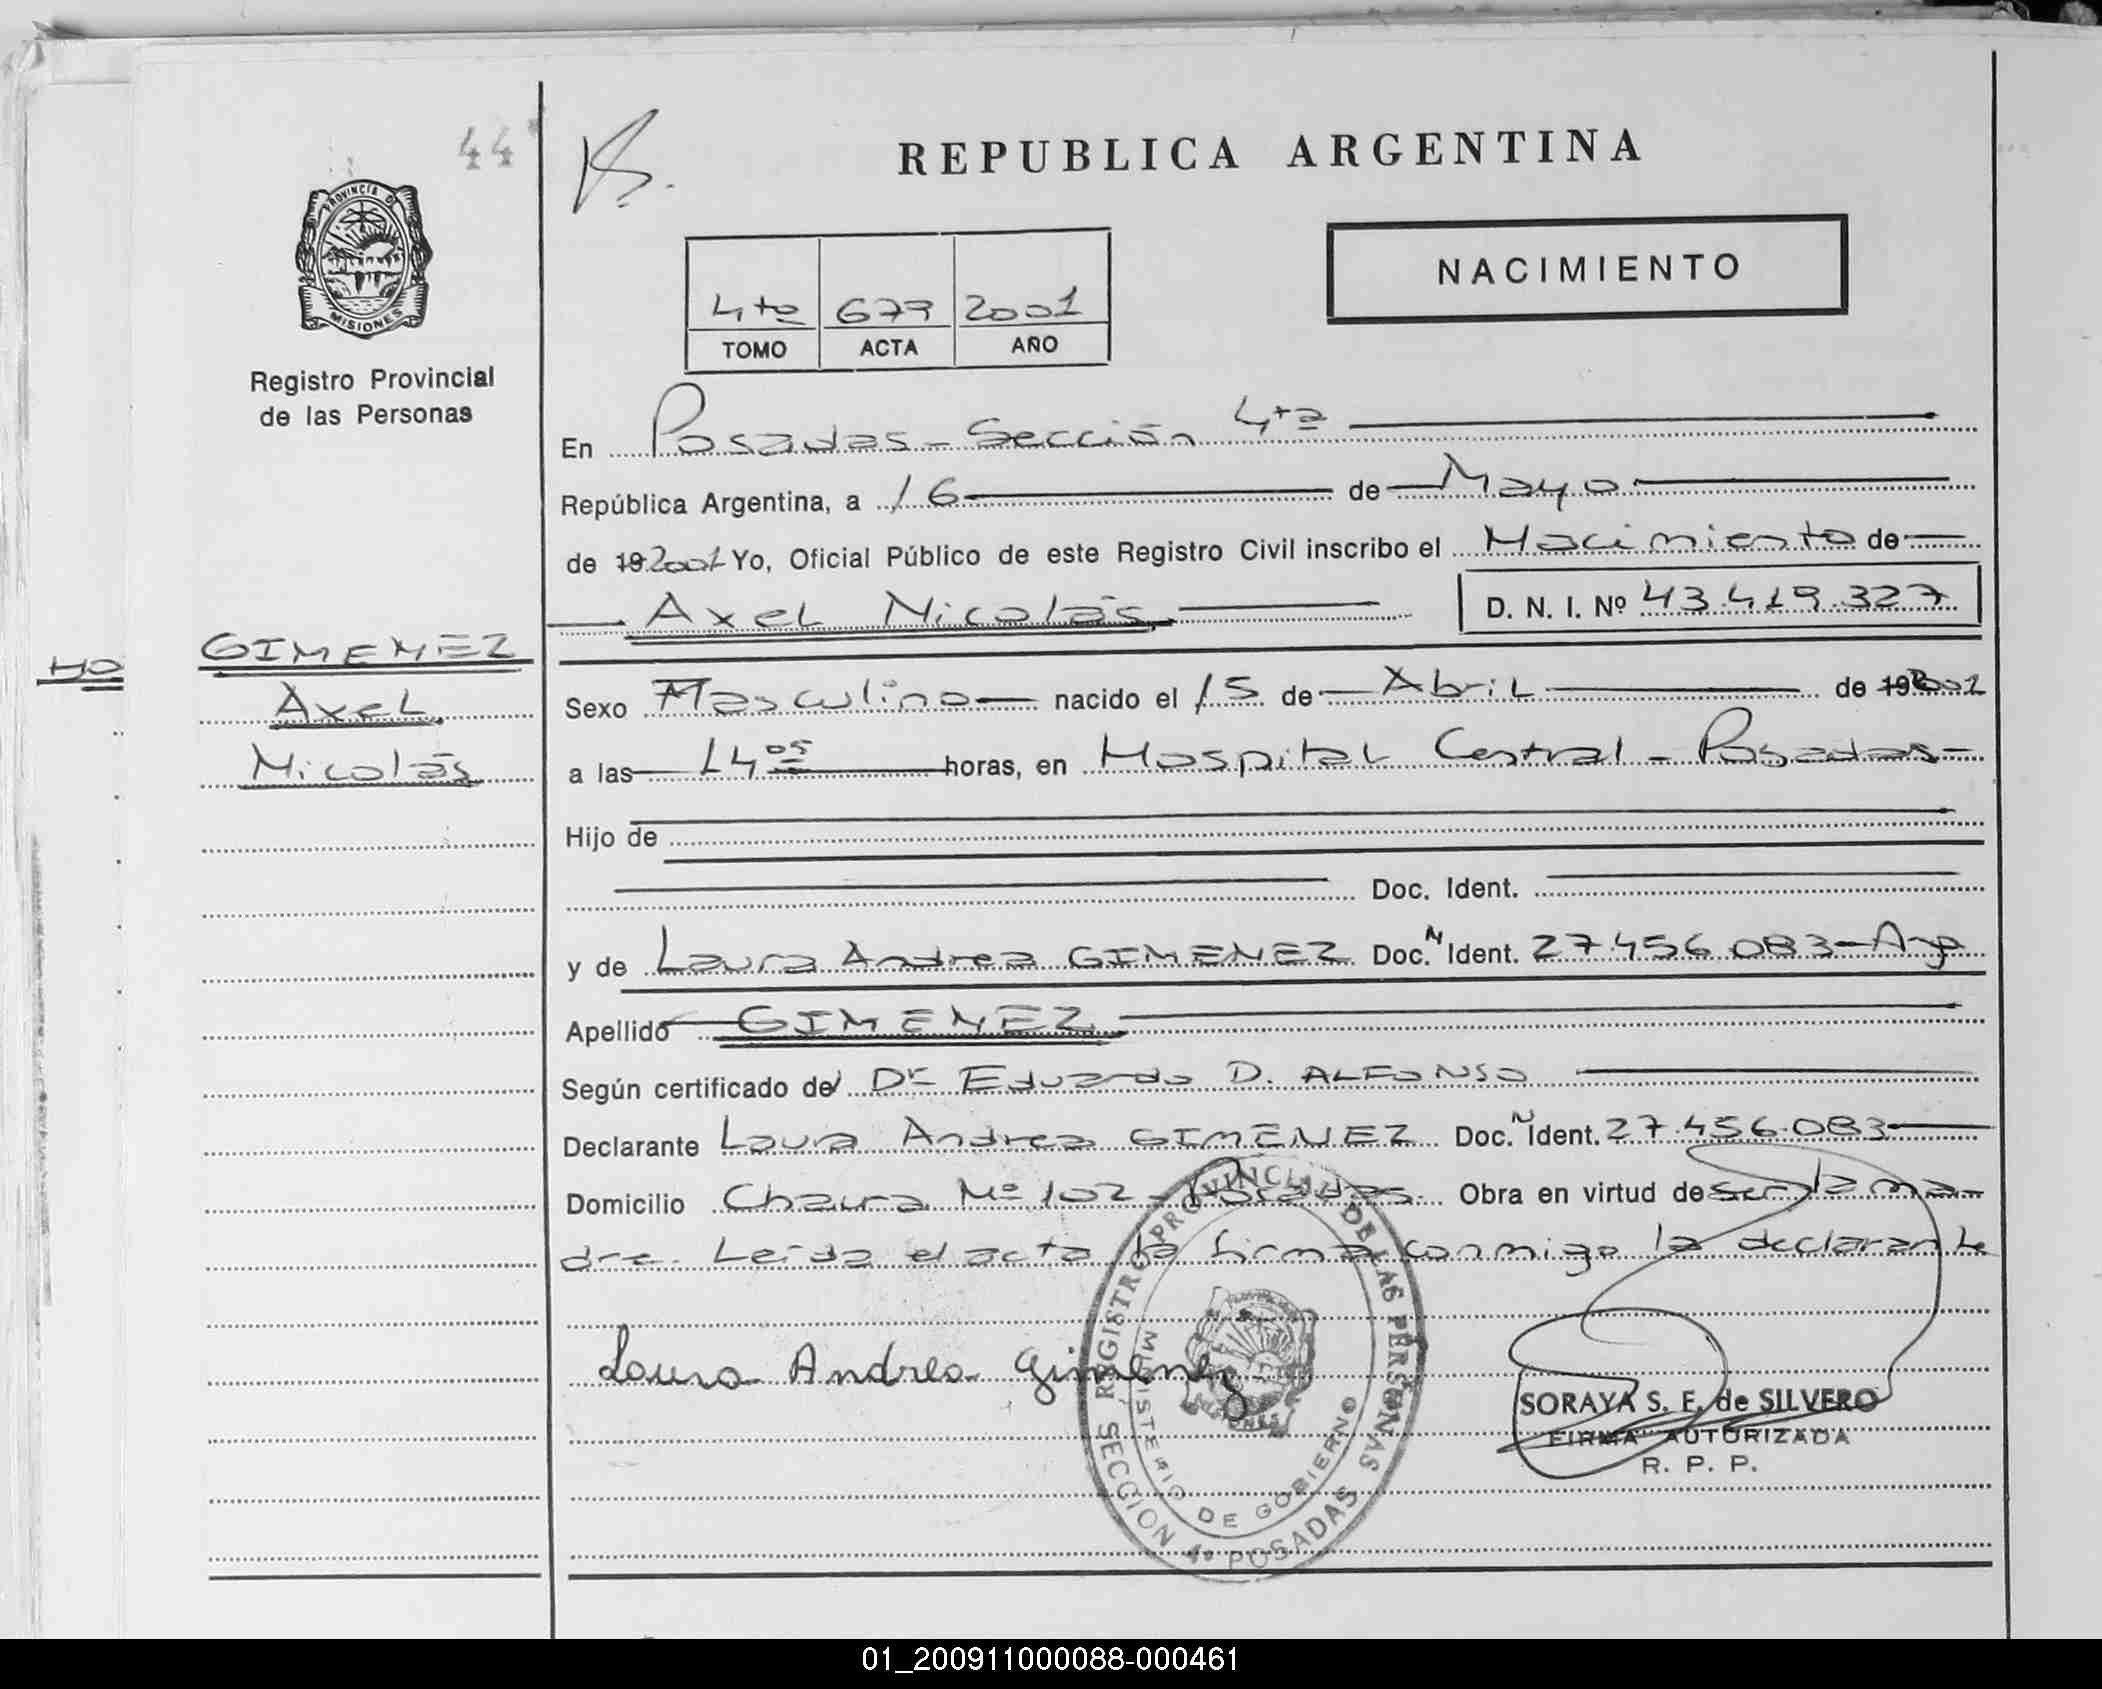 44
REPUBLICA ARGENTINA
PROVINCIA D
MISIONES
Registro Provincial
de las Personas
NACIMIENTO
4to 679 2001
TOMO ACTA AÑO
En Posadas - Sección 4ta
República Argentina, a 16 de Mayo
de 19 2001 Yo, Oficial Público de este Registro Civil inscribo el Nacimiento de
Axel Nicolás D. N. I. Nº 43.419.327
GIMENEZ
Axel
Nicolás
Sexo Masculino nacido el 15 de Abril de 19 2001
a las 14 05 horas, en Hospital Central - Posadas -
Hijo de
Doc. Ident.
y de Laura Andrea GIMENEZ Doc. N Ident. 27.456.083 - Arg
Apellido GIMENEZ
Según certificado del Dr Eduardo D. ALFONSO
Declarante Laura Andrea GIMENEZ Doc. N Ident. 27.456.083
Domicilio Chacra Nº 102 - Posadas. Obra en virtud de ser la ma-
dre. Leída el acta la firma conmigo la declarante
Laura Andrea Gimenez
REGISTRO PROVINCIAL DE LAS PERSONAS
MINISTERIO DE GOBIERNO
MISIONES
SECCION 4º POSADAS
SORAYA S. E. de SILVERO
FIRMA AUTORIZADA
R. P. P.
01_200911000088-000461